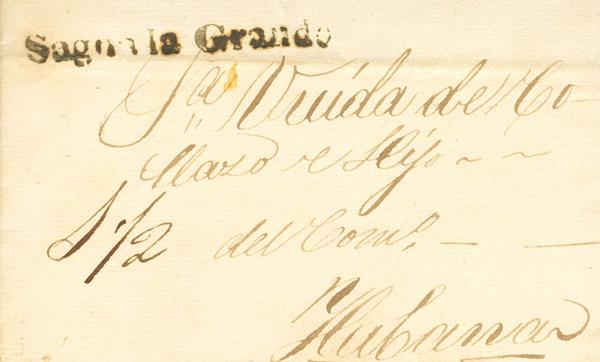 Sagua la Grande
Sra Viuda de Co-
llazo e Hijo
1/2 del Como
Habana